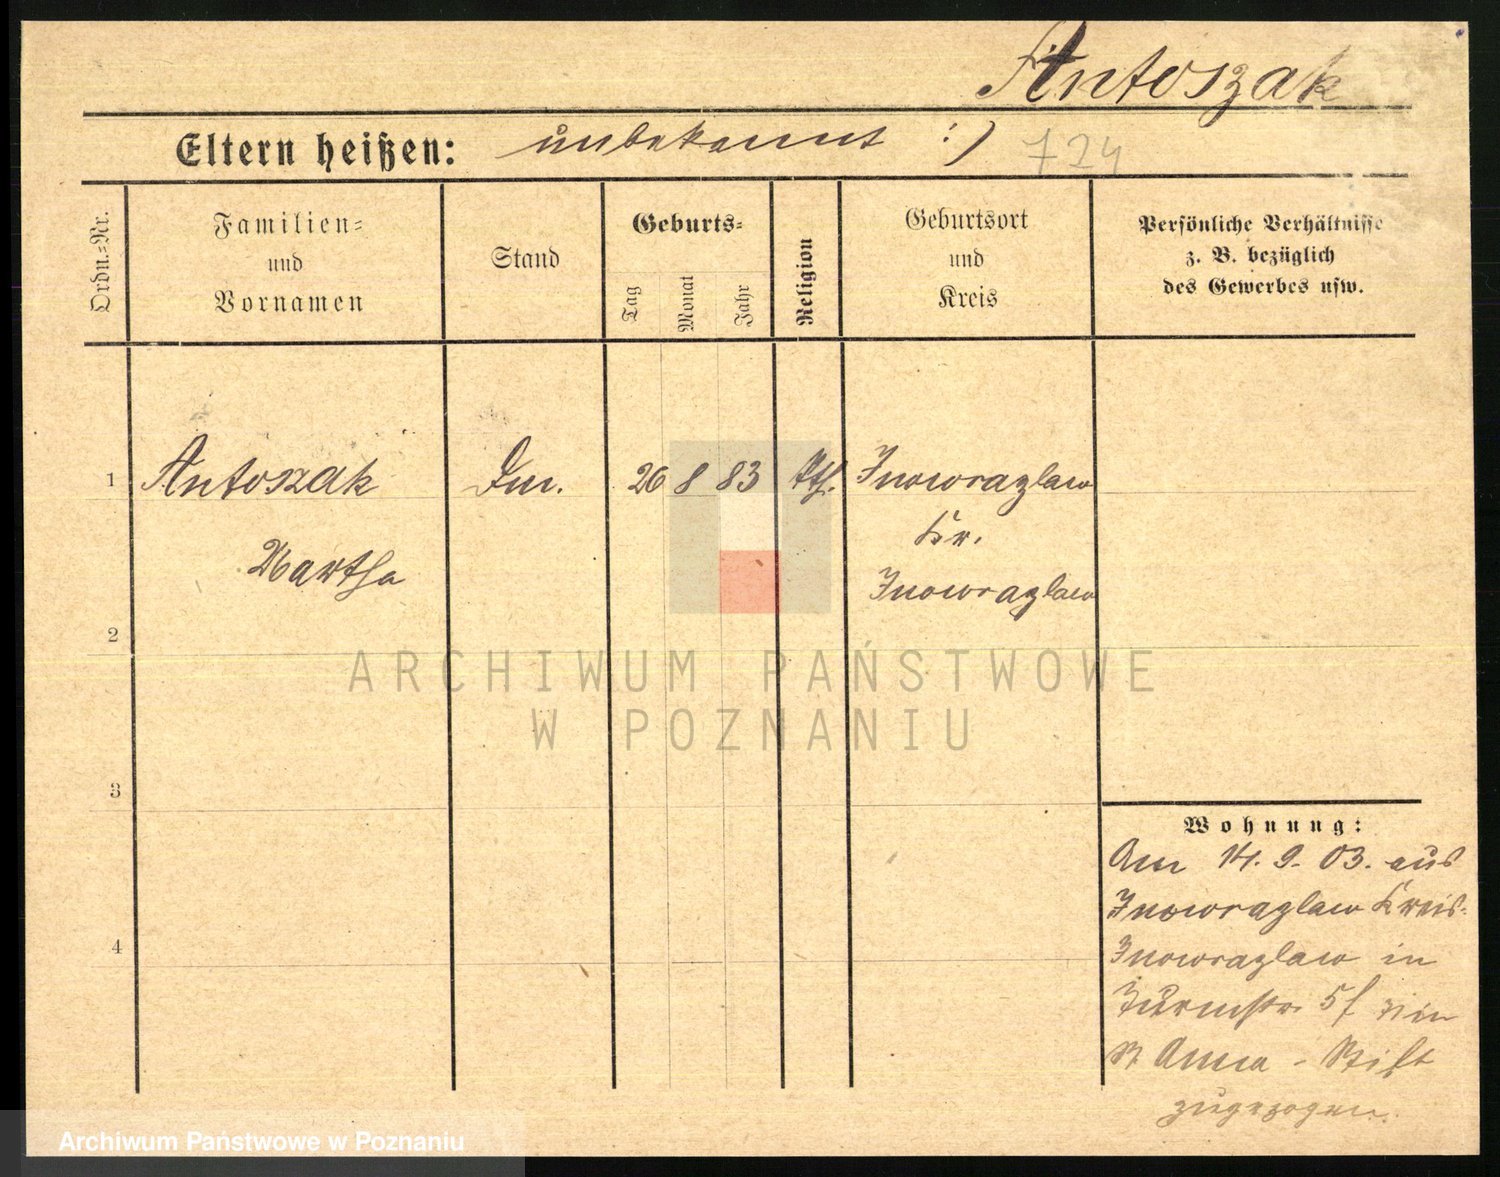 Antoszak
Eltern heißen: unbekannt :) 724
Ordn.-Nr.
Familien-
und
Vornamen
Stand
Geburts-
Tag
Monat
Jahr
Religion
Geburtsort
und
Kreis
Persönliche Verhältnisse
z. B. bezüglich
des Gewerbes usw.
1 Antoszak 26 8 83 kth. Inowrazlaw
Kr.
Martha Inowrazlaw
2
3
4
ARCHIWUM PAŃSTWOWE
W POZNANIU
Wohnung:
Am 14. 9. 03. aus
Inowrazlaw Kreis-
Inowrazlaw in
5
St Anna - Stift
zugezogen.
Archiwum Państwowe w Poznaniu